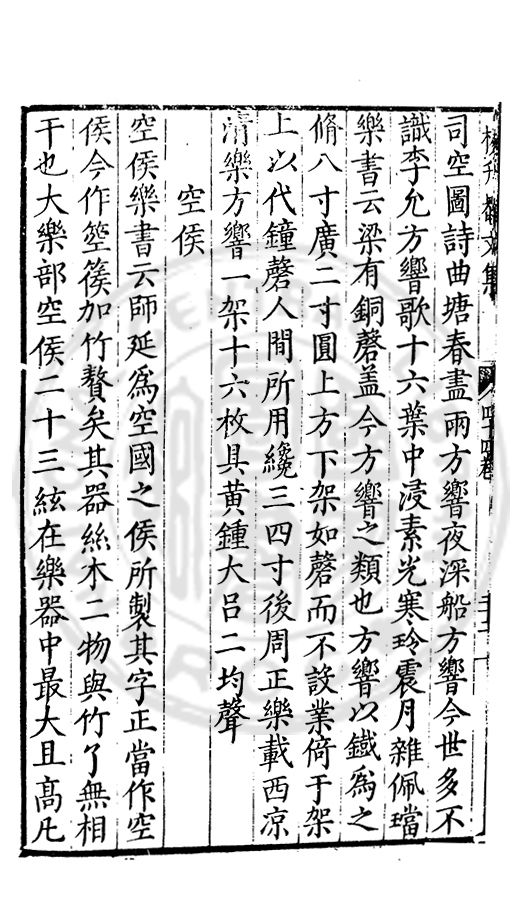 司空圖詩曲塘春盡雨方響夜深船方響今世多不
識李允方響歌十六葉中浸素光寒玲震月雜佩璫
樂書云梁有銅磬盖今方響之類也方響以鐵為之
脩八寸廣二寸圓上方下架如磬而不設業倚于架
上以代鐘磬人間所用纔三四寸後周正樂載西凉
清樂方響一架十六枚具黃鍾大呂二均聲
空侯
空侯樂書云師延為空國之侯所製其字正當作空
侯今作箜篌加竹贅矣其器絲木二物與竹了無相
干也大樂部空侯二十三絃在樂器中最大且高凡
文集
四十四卷